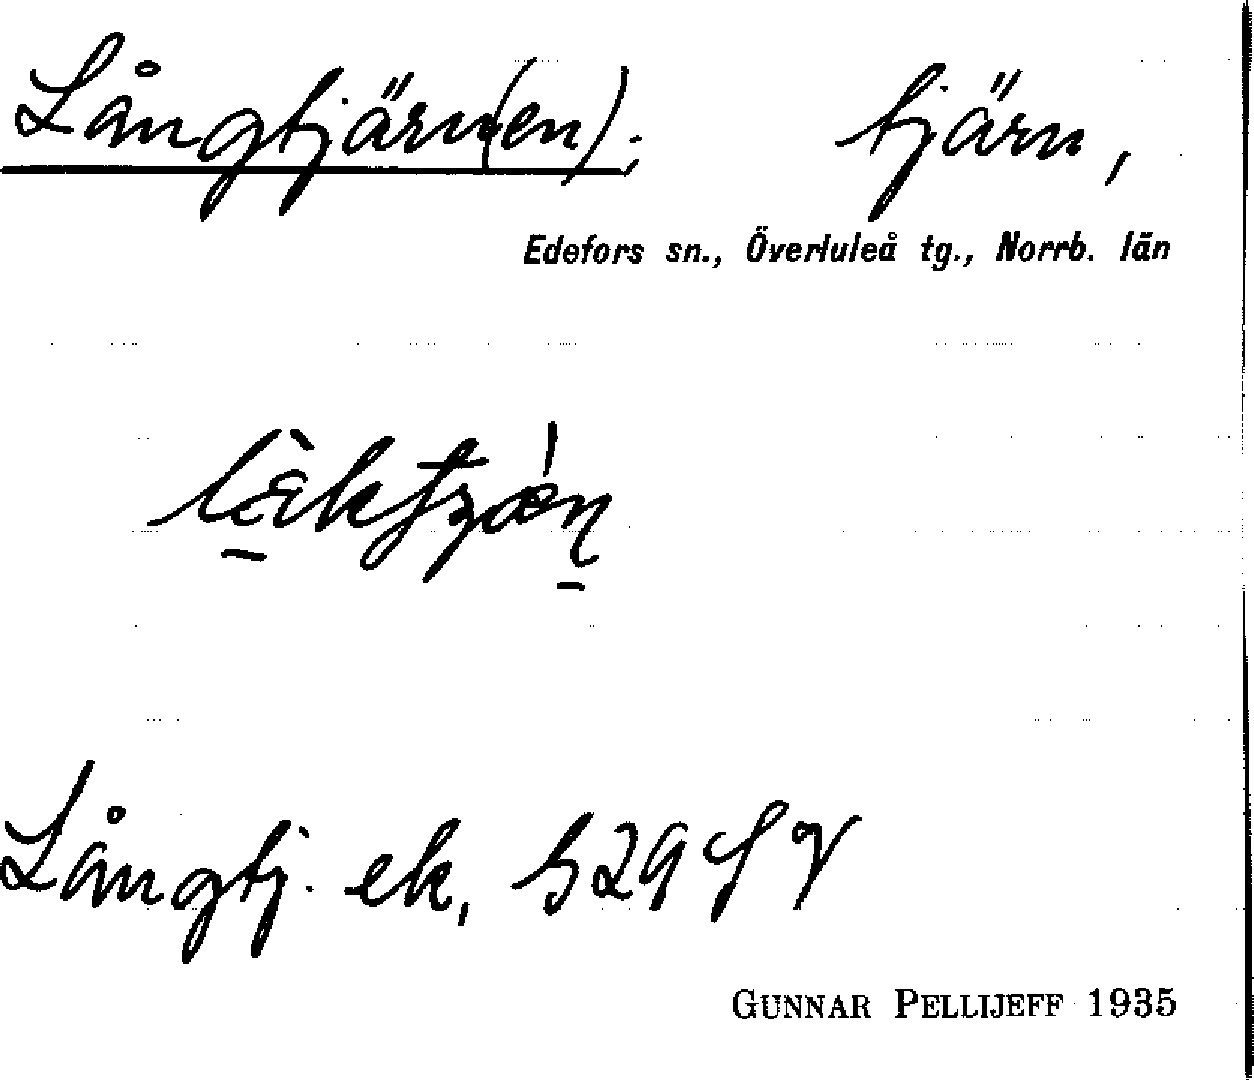 Långtjärn(en); tjärn,
Edefors sn., Överluleå tg., Norrb. län
Långtj. ek, b 29 f V
GUNNAR PELLIJEFF 1935